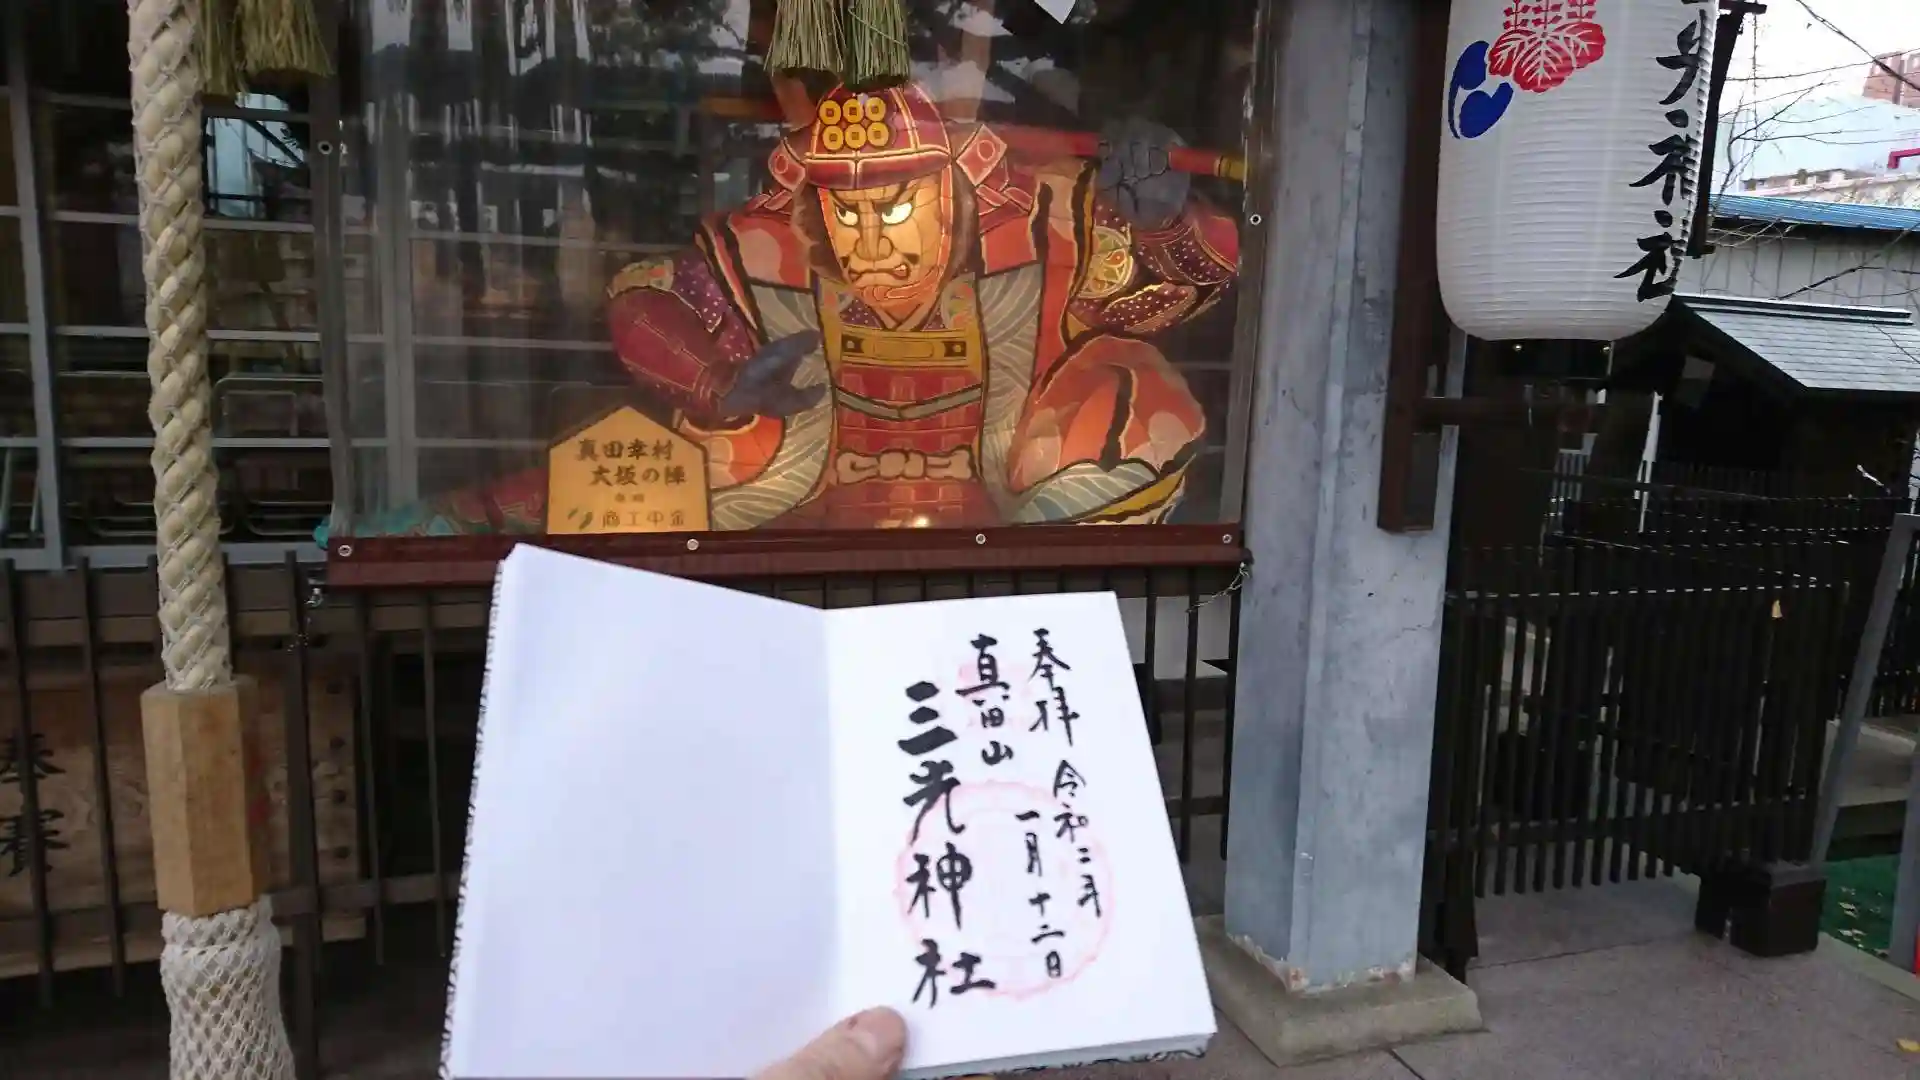 真田幸村
大坂の陣
商工中金
奉拝
令和二年
一月十二日
真田山
三光神社
光神社